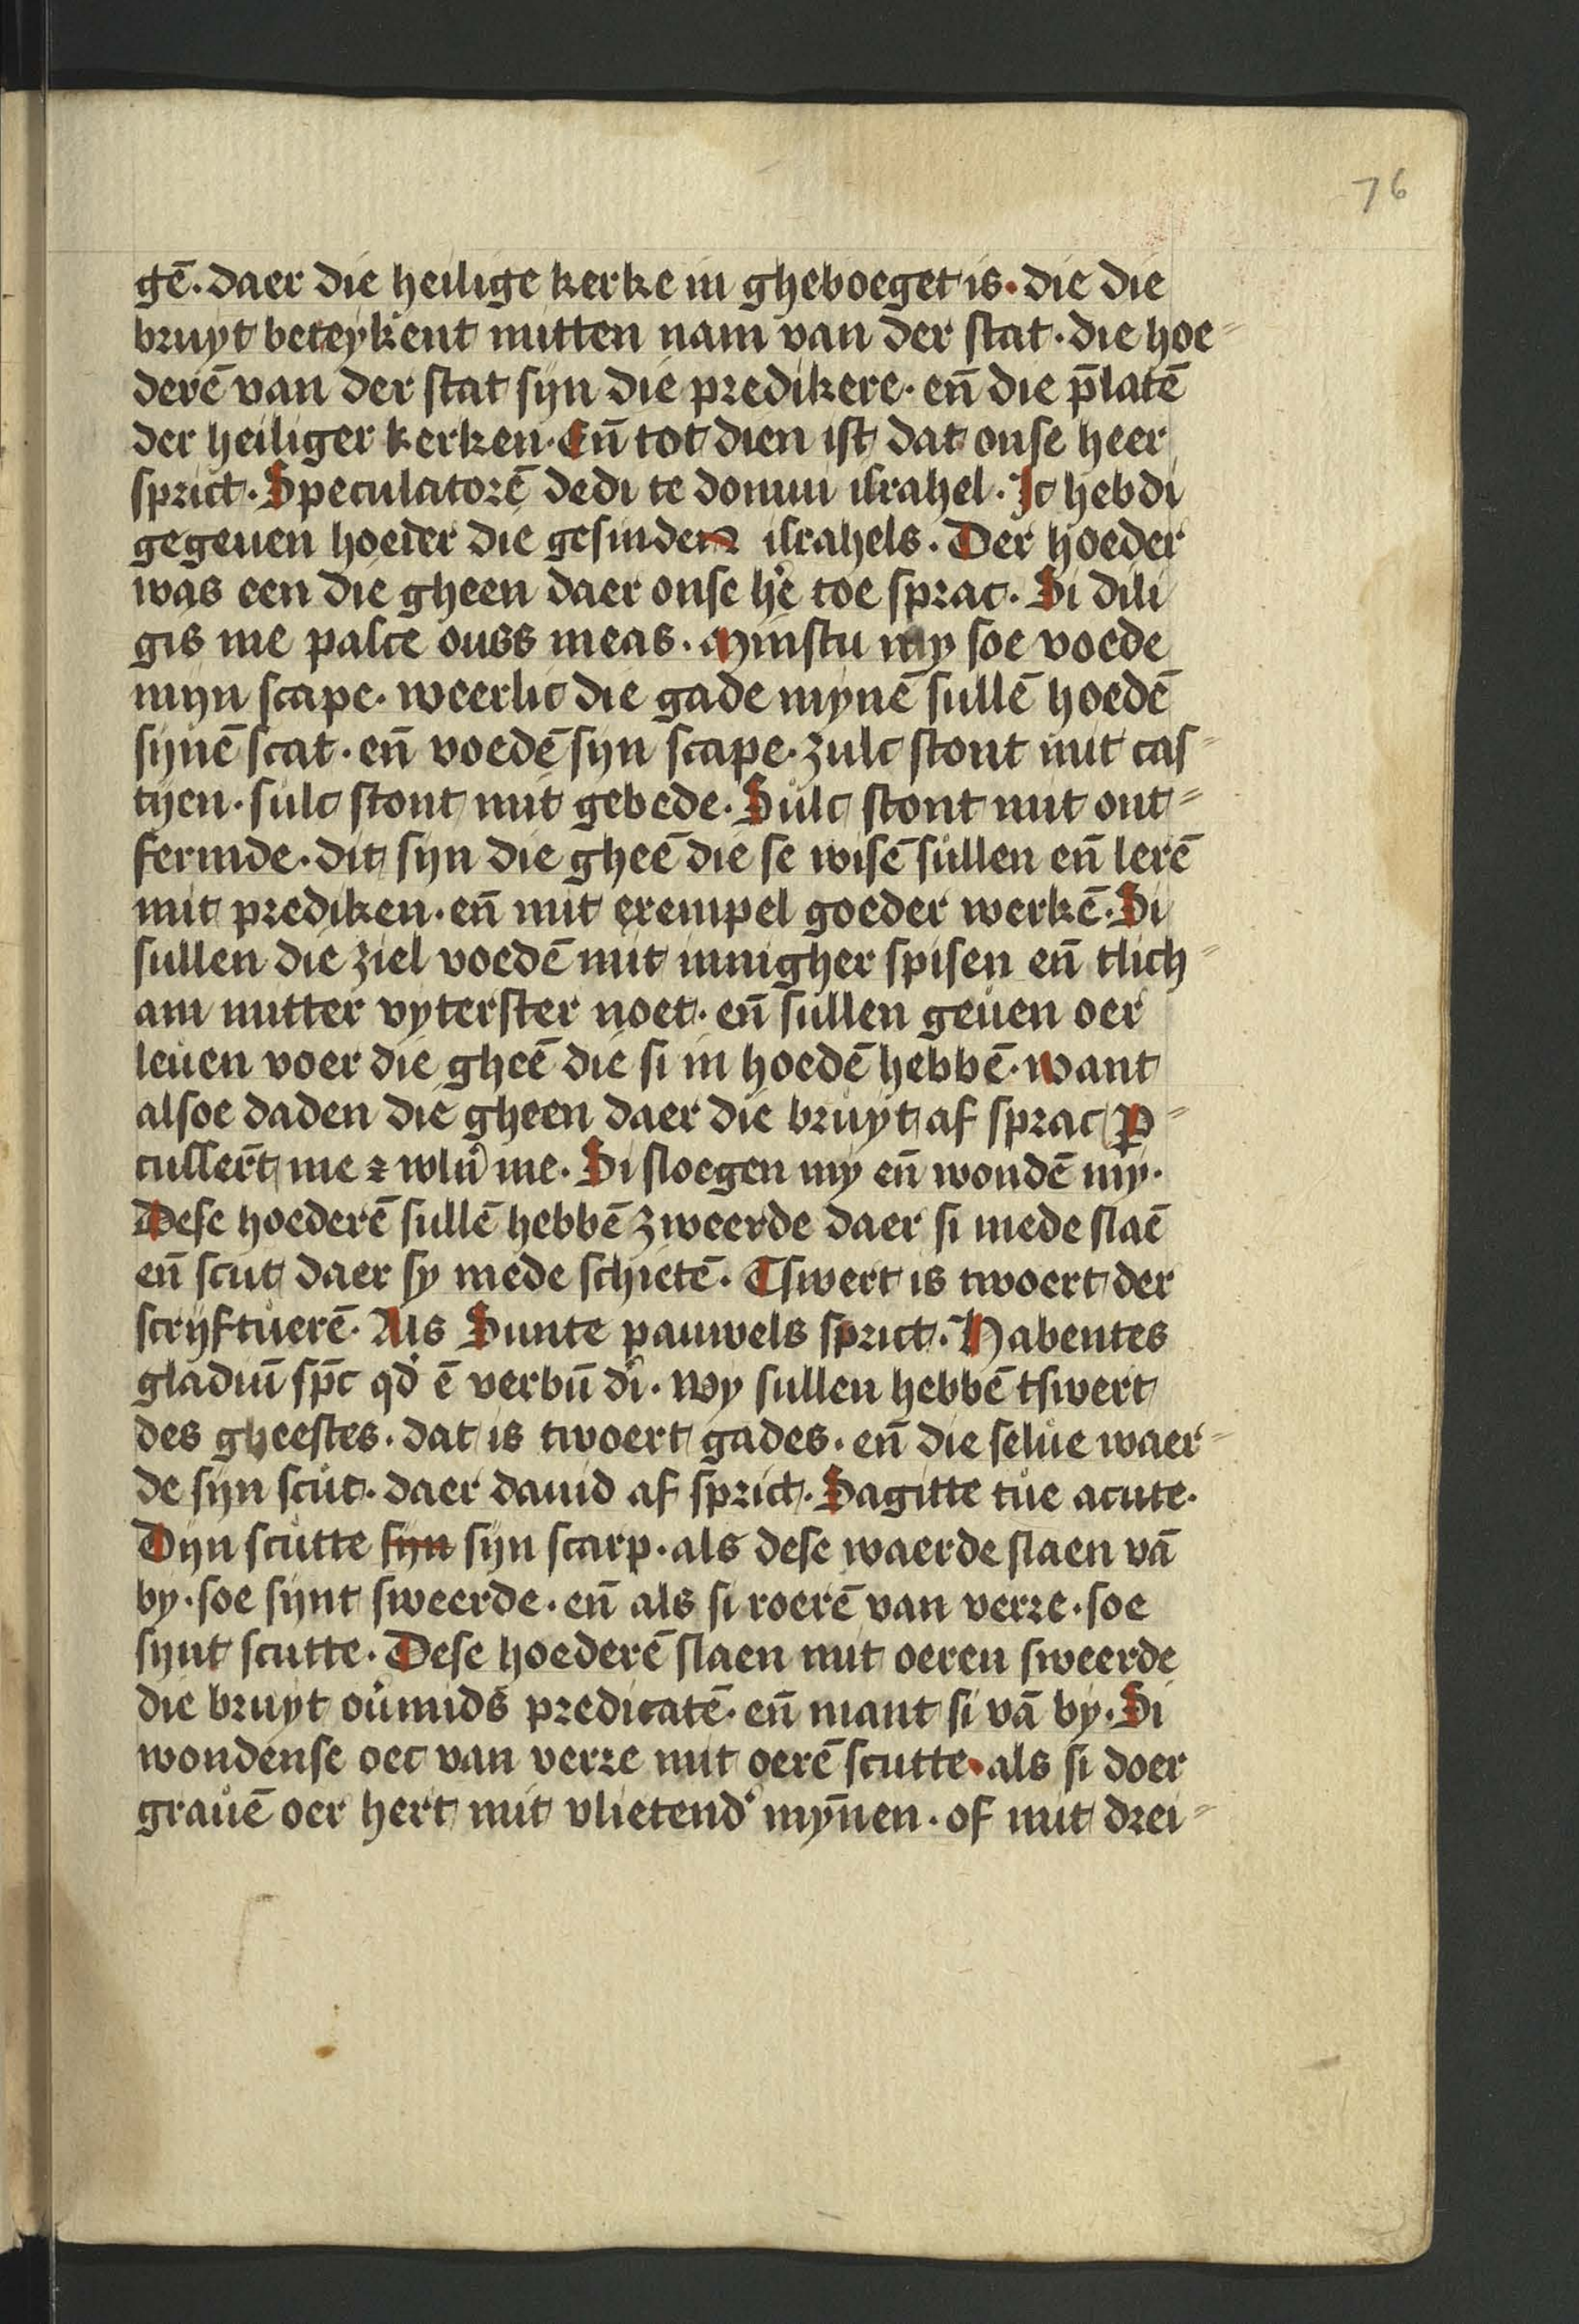 76
gē. daer die heilige kerke in gheboeget is. die die
bruyt beteykent mitten nam van der stat. die hoe=
derē van der stat syn die predikere. eñ die p̄latē
der heiliger kerken. Eñ tot dien ist dat onse heer
sprict. Speculatorē dedi te domui israhel. Ic heb di
gegeuen hoeder die gesinden israhels. Der hoeder
was een die gheen daer onse hr̄e toe sprac. Si dili
gis me pasce oues meas. Minstu my soe voede
myn scape. weerlic die gade mynē sullē hoedē
synē scat. eñ voedē syn scape. zulc stont mit cas=
tyen. sulc stont mit gebede. Sulc stont mit ont=
fermde. dit syn die gheē die se wisē sullen eñ lerē
mit prediken. eñ mit exempel goeder werkē. Si
sullen die ziel voedē mit innigher spisen eñ tlich=
am mitter vyterster noet. eñ sullen geuen oer
leuen voer die gheē die si in hoedē hebbē. want
alsoe daden die gheen daer die bruyt af sprac p̄=
cussert̄ me ⁊ wln̄ me. Si sloegen my eñ wondē my.
Dese hoederē sullē hebbē zweerde daer si mede slaē
eñ scut daer sy mede schietē. Tswert is twoert der
scryftuerē. Als Sunte pauwels sprict. Habentes
gladiū sp̄c qd̄ ē verbū dī. wy sullen hebbē tswert
des gheestes. dat is twoert gades. eñ die selue waer=
de syn scut. daer dauid af sprict. Sagitte tue acute.
Dyn scutte syn syn scarp. als dese waerde slaen vā
by. soe synt sweerde. eñ als si roerē van verre. soe
synt scutte. Dese hoederē slaen mit oeren sweerde
die bruyt ou̓mids predicatē. eñ mant si vā by. Si
wondense oec van verre mit oerē scutte. als si doer
grauē oer hert mit vlietend̓ mȳnen. of mit drei=